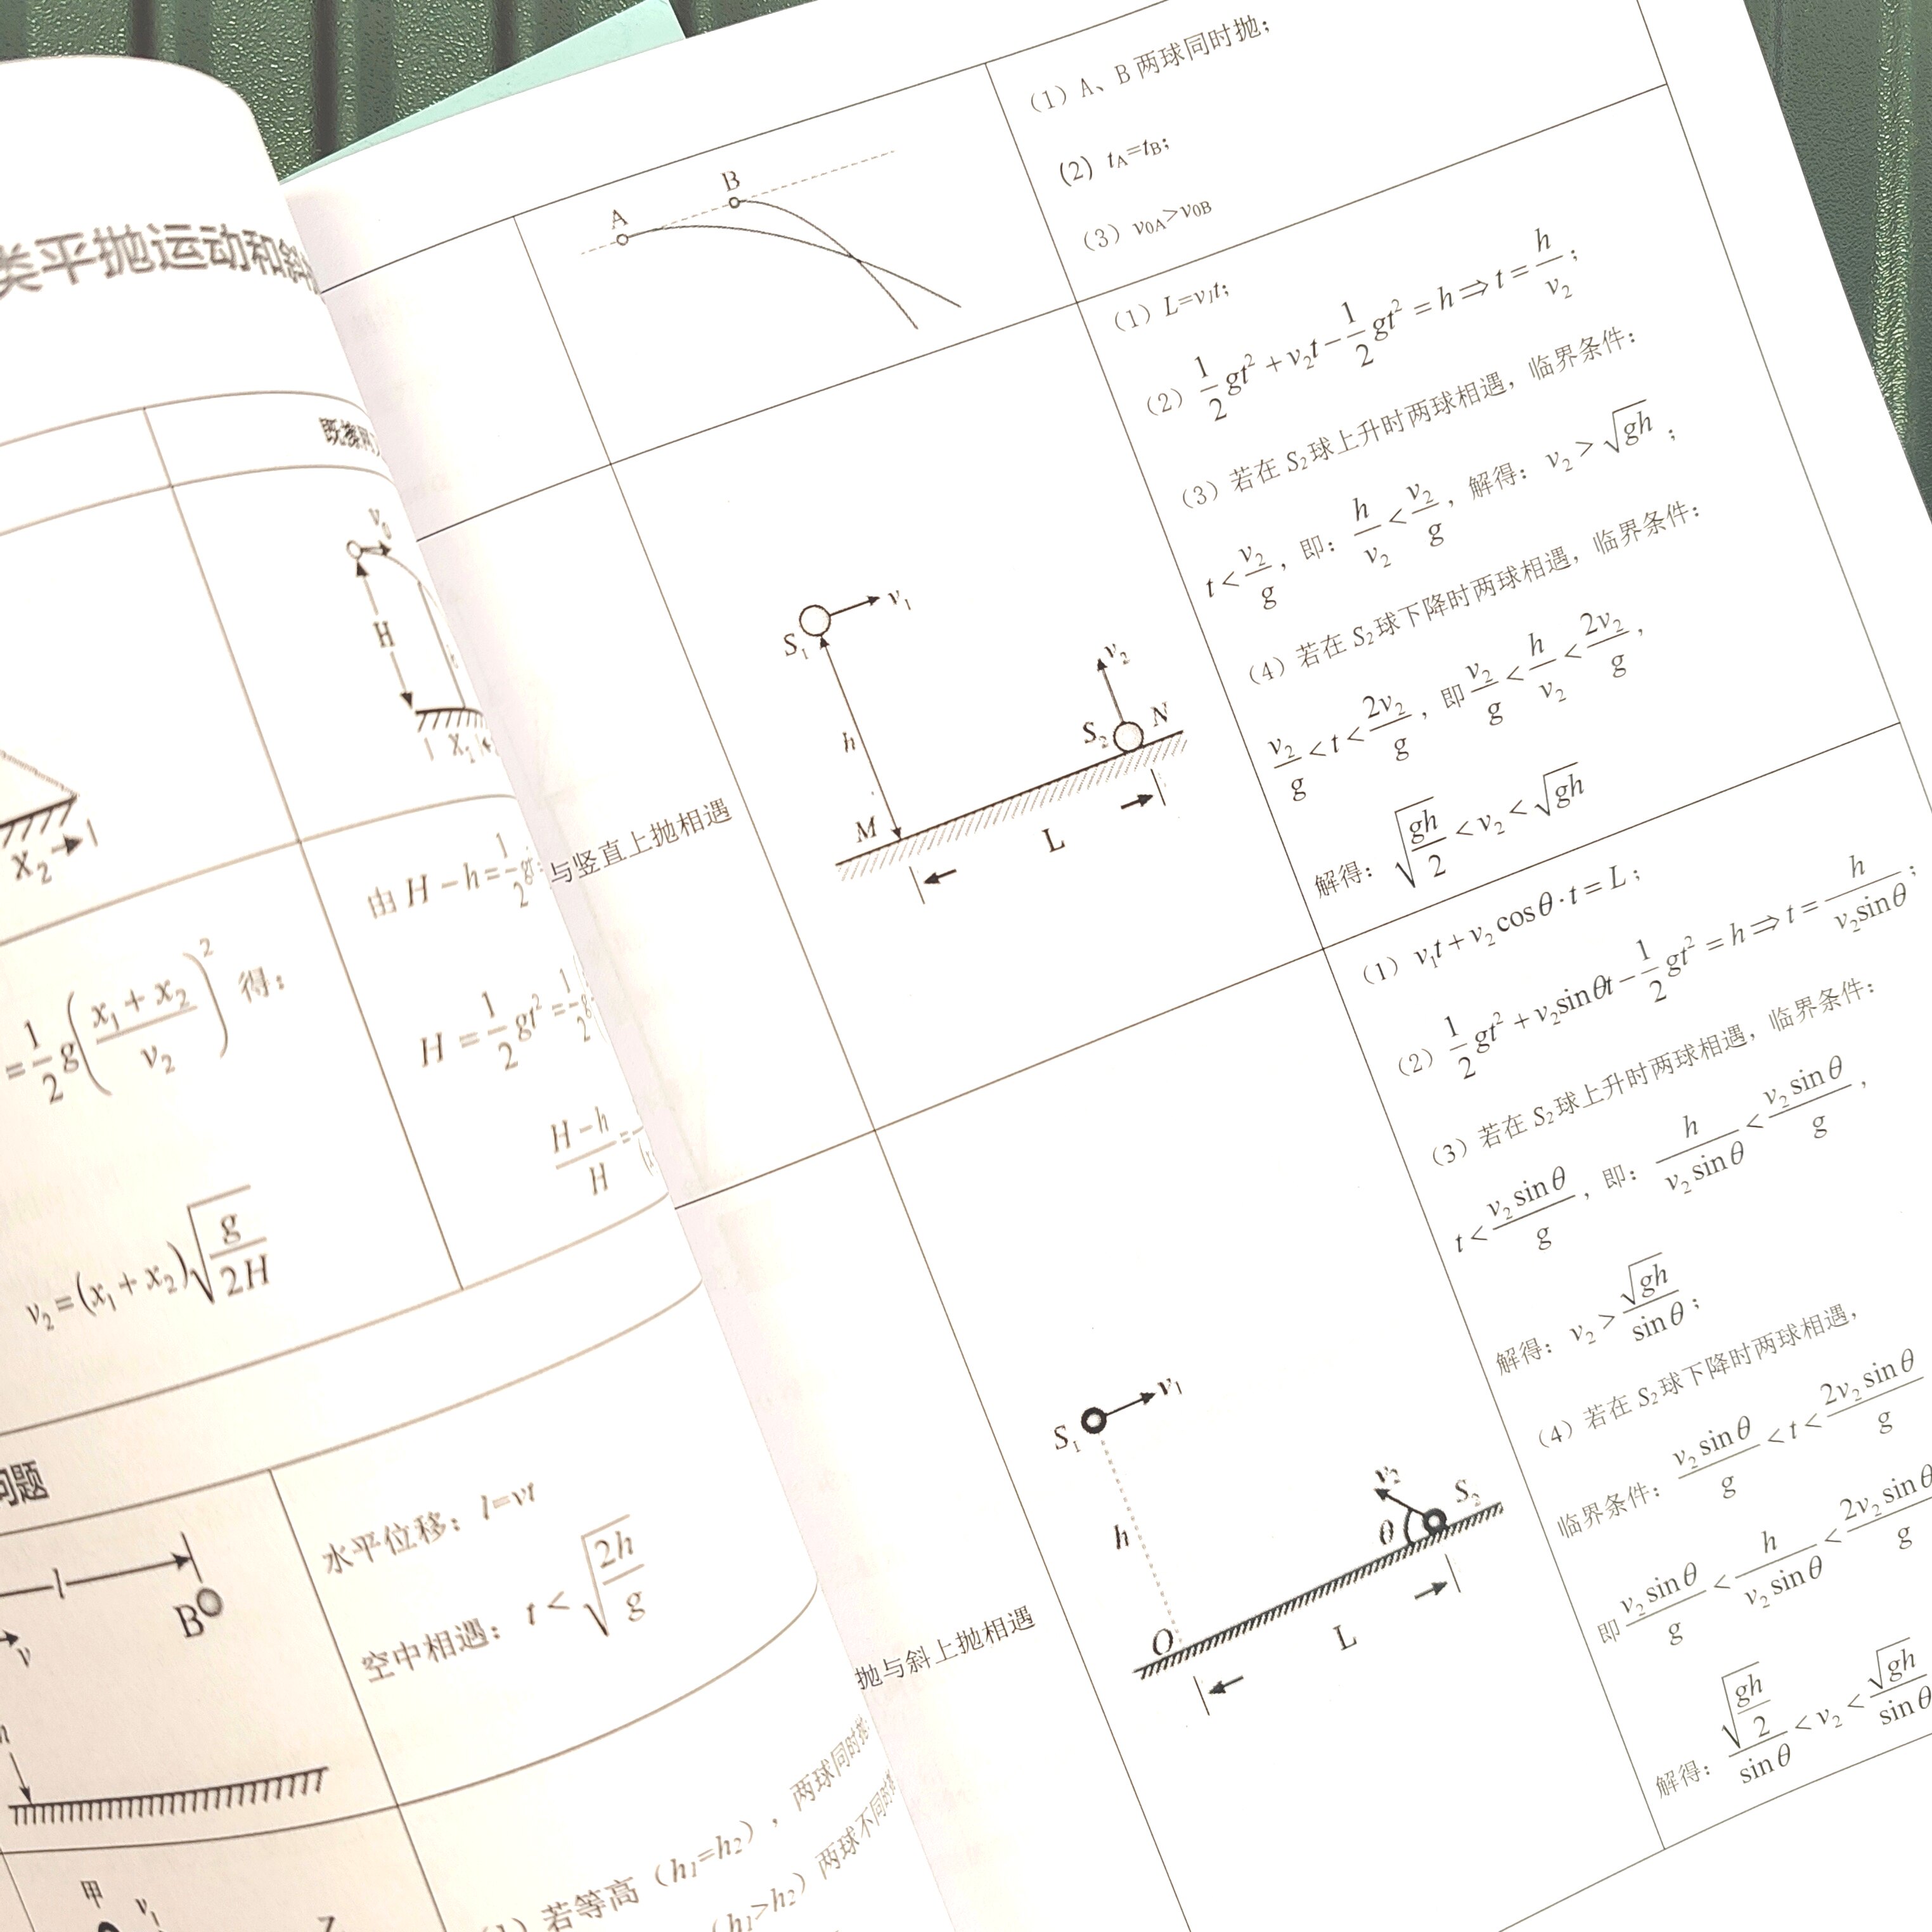 类平抛运动和斜
v₀
H
X₁
X₂
由 H − h = 1/2 g
= 1/2 g((x₁ + x₂)/v₂)² 得：
H = 1/2 gt² = 1/2
(H − h)/H =
v₂ = (x₁ + x₂)√(g/(2H))
问题
l
B
v
水平位移：l=vt
空中相遇：t < √(2h/g)
甲
v₁
若等高（h₁=h₂），两球同时
（h₁>h₂）两球不同时
A
B
（1）A、B 两球同时抛；
（2）t_A=t_B；
（3）v₀A>v₀B
与竖直上抛相遇
S₁
v₁
h
v₂
S₂
N
M
L
（1）L=v₁t；
（2）1/2 gt² + v₂t − 1/2 gt² = h ⇒ t = h/v₂；
（3）若在 S₂球上升时两球相遇，临界条件：
t < v₂/g，即：h/v₂ < v₂/g，解得：v₂ > √(gh)；
（4）若在 S₂球下降时两球相遇，临界条件：
v₂/g < t < 2v₂/g，即 v₂/g < h/v₂ < 2v₂/g，
解得：√(gh/2) < v₂ < √(gh)
抛与斜上抛相遇
S₁
v₁
h
v₂
S₂
θ
O
L
（1）v₁t + v₂cosθ·t = L；
（2）1/2 gt² + v₂sinθt − 1/2 gt² = h ⇒ t = h/(v₂sinθ)；
（3）若在 S₂球上升时两球相遇，临界条件：
t < v₂sinθ/g，即：h/(v₂sinθ) < v₂sinθ/g，
解得：v₂ > √(gh)/sinθ；
（4）若在 S₂球下降时两球相遇，
临界条件：v₂sinθ/g < t < 2v₂sinθ/g
即 v₂sinθ/g < h/(v₂sinθ) < 2v₂sinθ/g
解得：√(gh/2)/sinθ < v₂ < √(gh)/sinθ